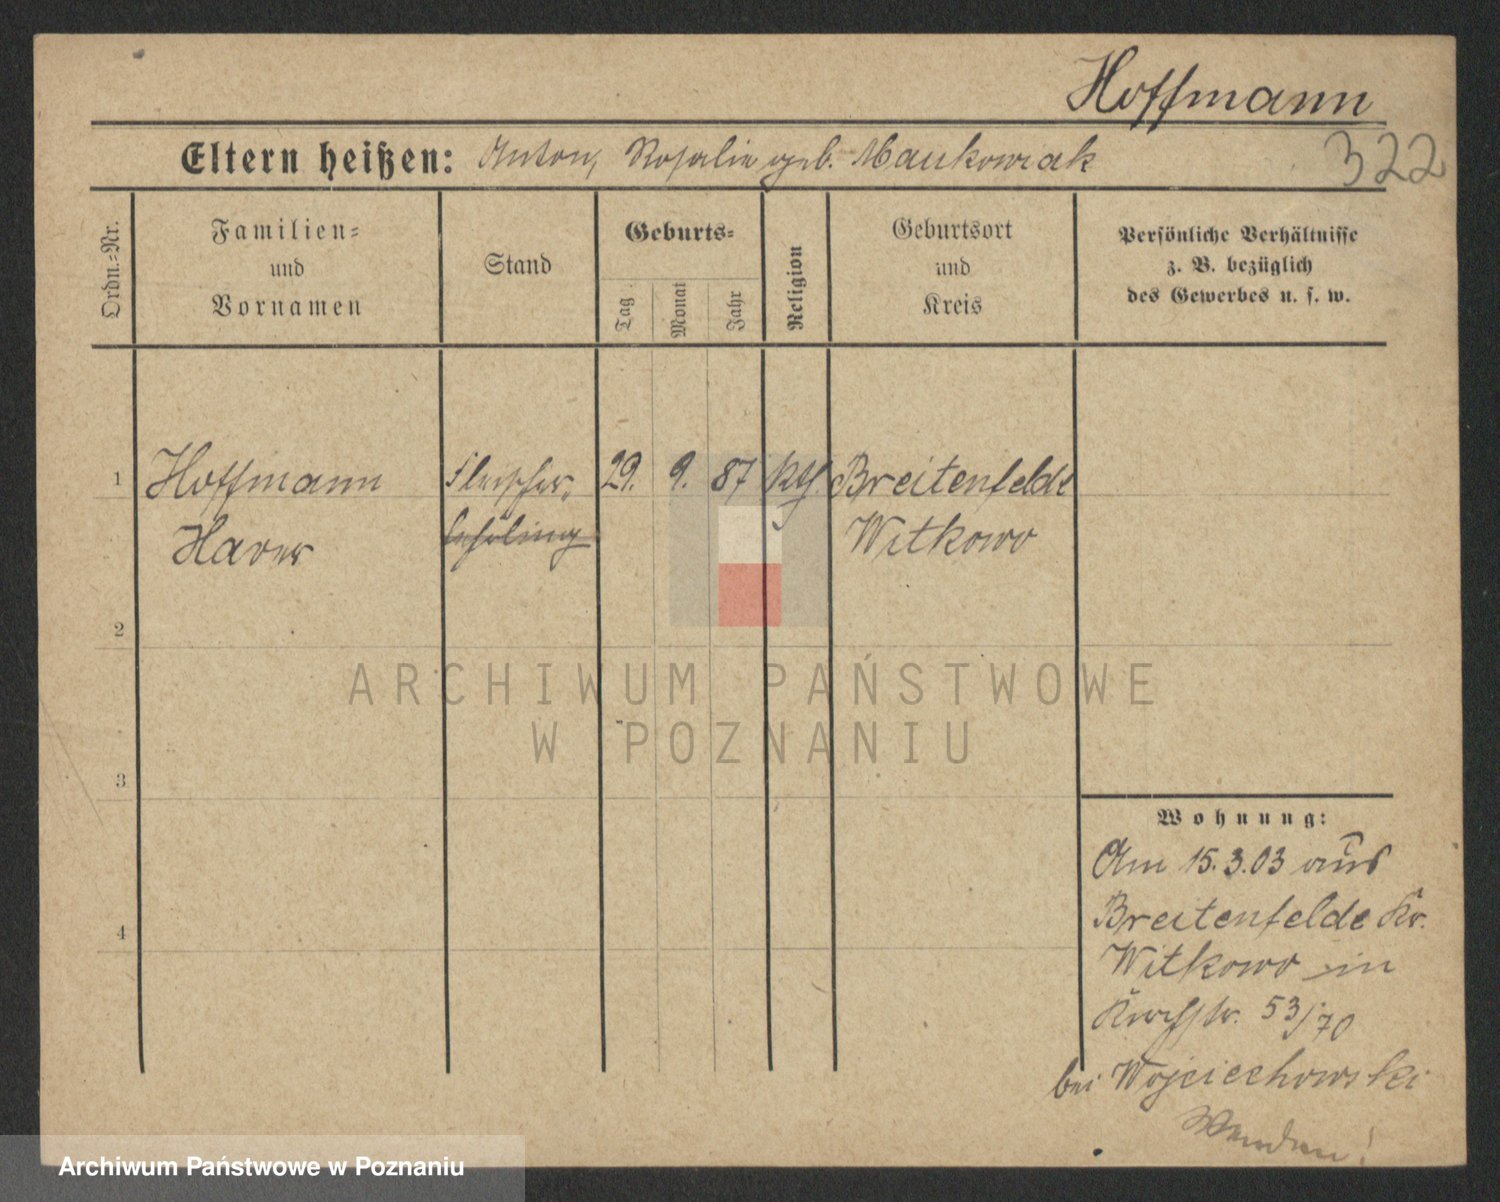 Hoffmann
Eltern heißen: Anton, Rosalie geb. Maukowiak
322
Ordn.-Nr.
Familien-
und
Vornamen
Stand
Geburts-
Tag
Monat
Jahr
Religion
Geburtsort
und
Kreis
Persönliche Verhältnisse
z. B. bezüglich
des Gewerbes u. s. w.
1 Hoffmann Fleischer, 29. 9. 87 kth. Breitenfelde
lehrling Witkowo
2
ARCHIWUM PAŃSTWOWE
W POZNANIU
3
Wohnung:
Am 15.3.03 aus
4 Breitenfelde Kr.
Witkowo in
Kirchstr. 53/70
bei Wojciechowski
Wenden!
Archiwum Państwowe w Poznaniu